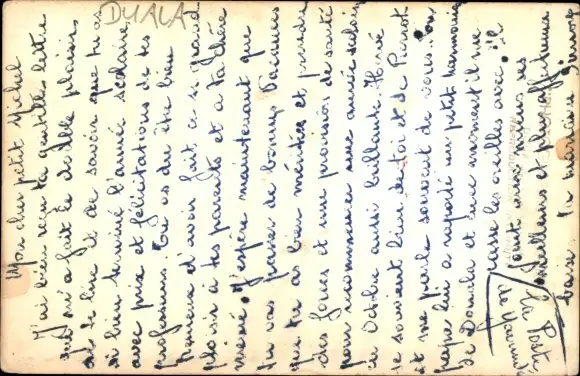 DUALA
Mon cher petit Michel
J'ai bien reçu ta gentille lettre
qui m'a fait le plaisir
de te lire et de savoir que tu as
si bien terminé l'année scolaire
avec prix et félicitations de tes
professeurs. Tu as dû être bien
heureux d'avoir fait ce si grand
plaisir à tes parents et à ta chère
mémé. J'espère maintenant que
tu vas passer de bonnes vacances
que tu as bien méritées et prendre
des joues et une provision de santé
pour recommencer une année scolaire
en Octobre aussi brillante. Hervé
se souvient bien de toi et de Pierrot
et me parle souvent de vous. Son
papa lui a rapporté un petit harmonica
de Douala et en ce moment il me
casse les oreilles avec. Il
joint aux miens ses
meilleurs et plus affectueux
baisers. Ta marraine
La Poste